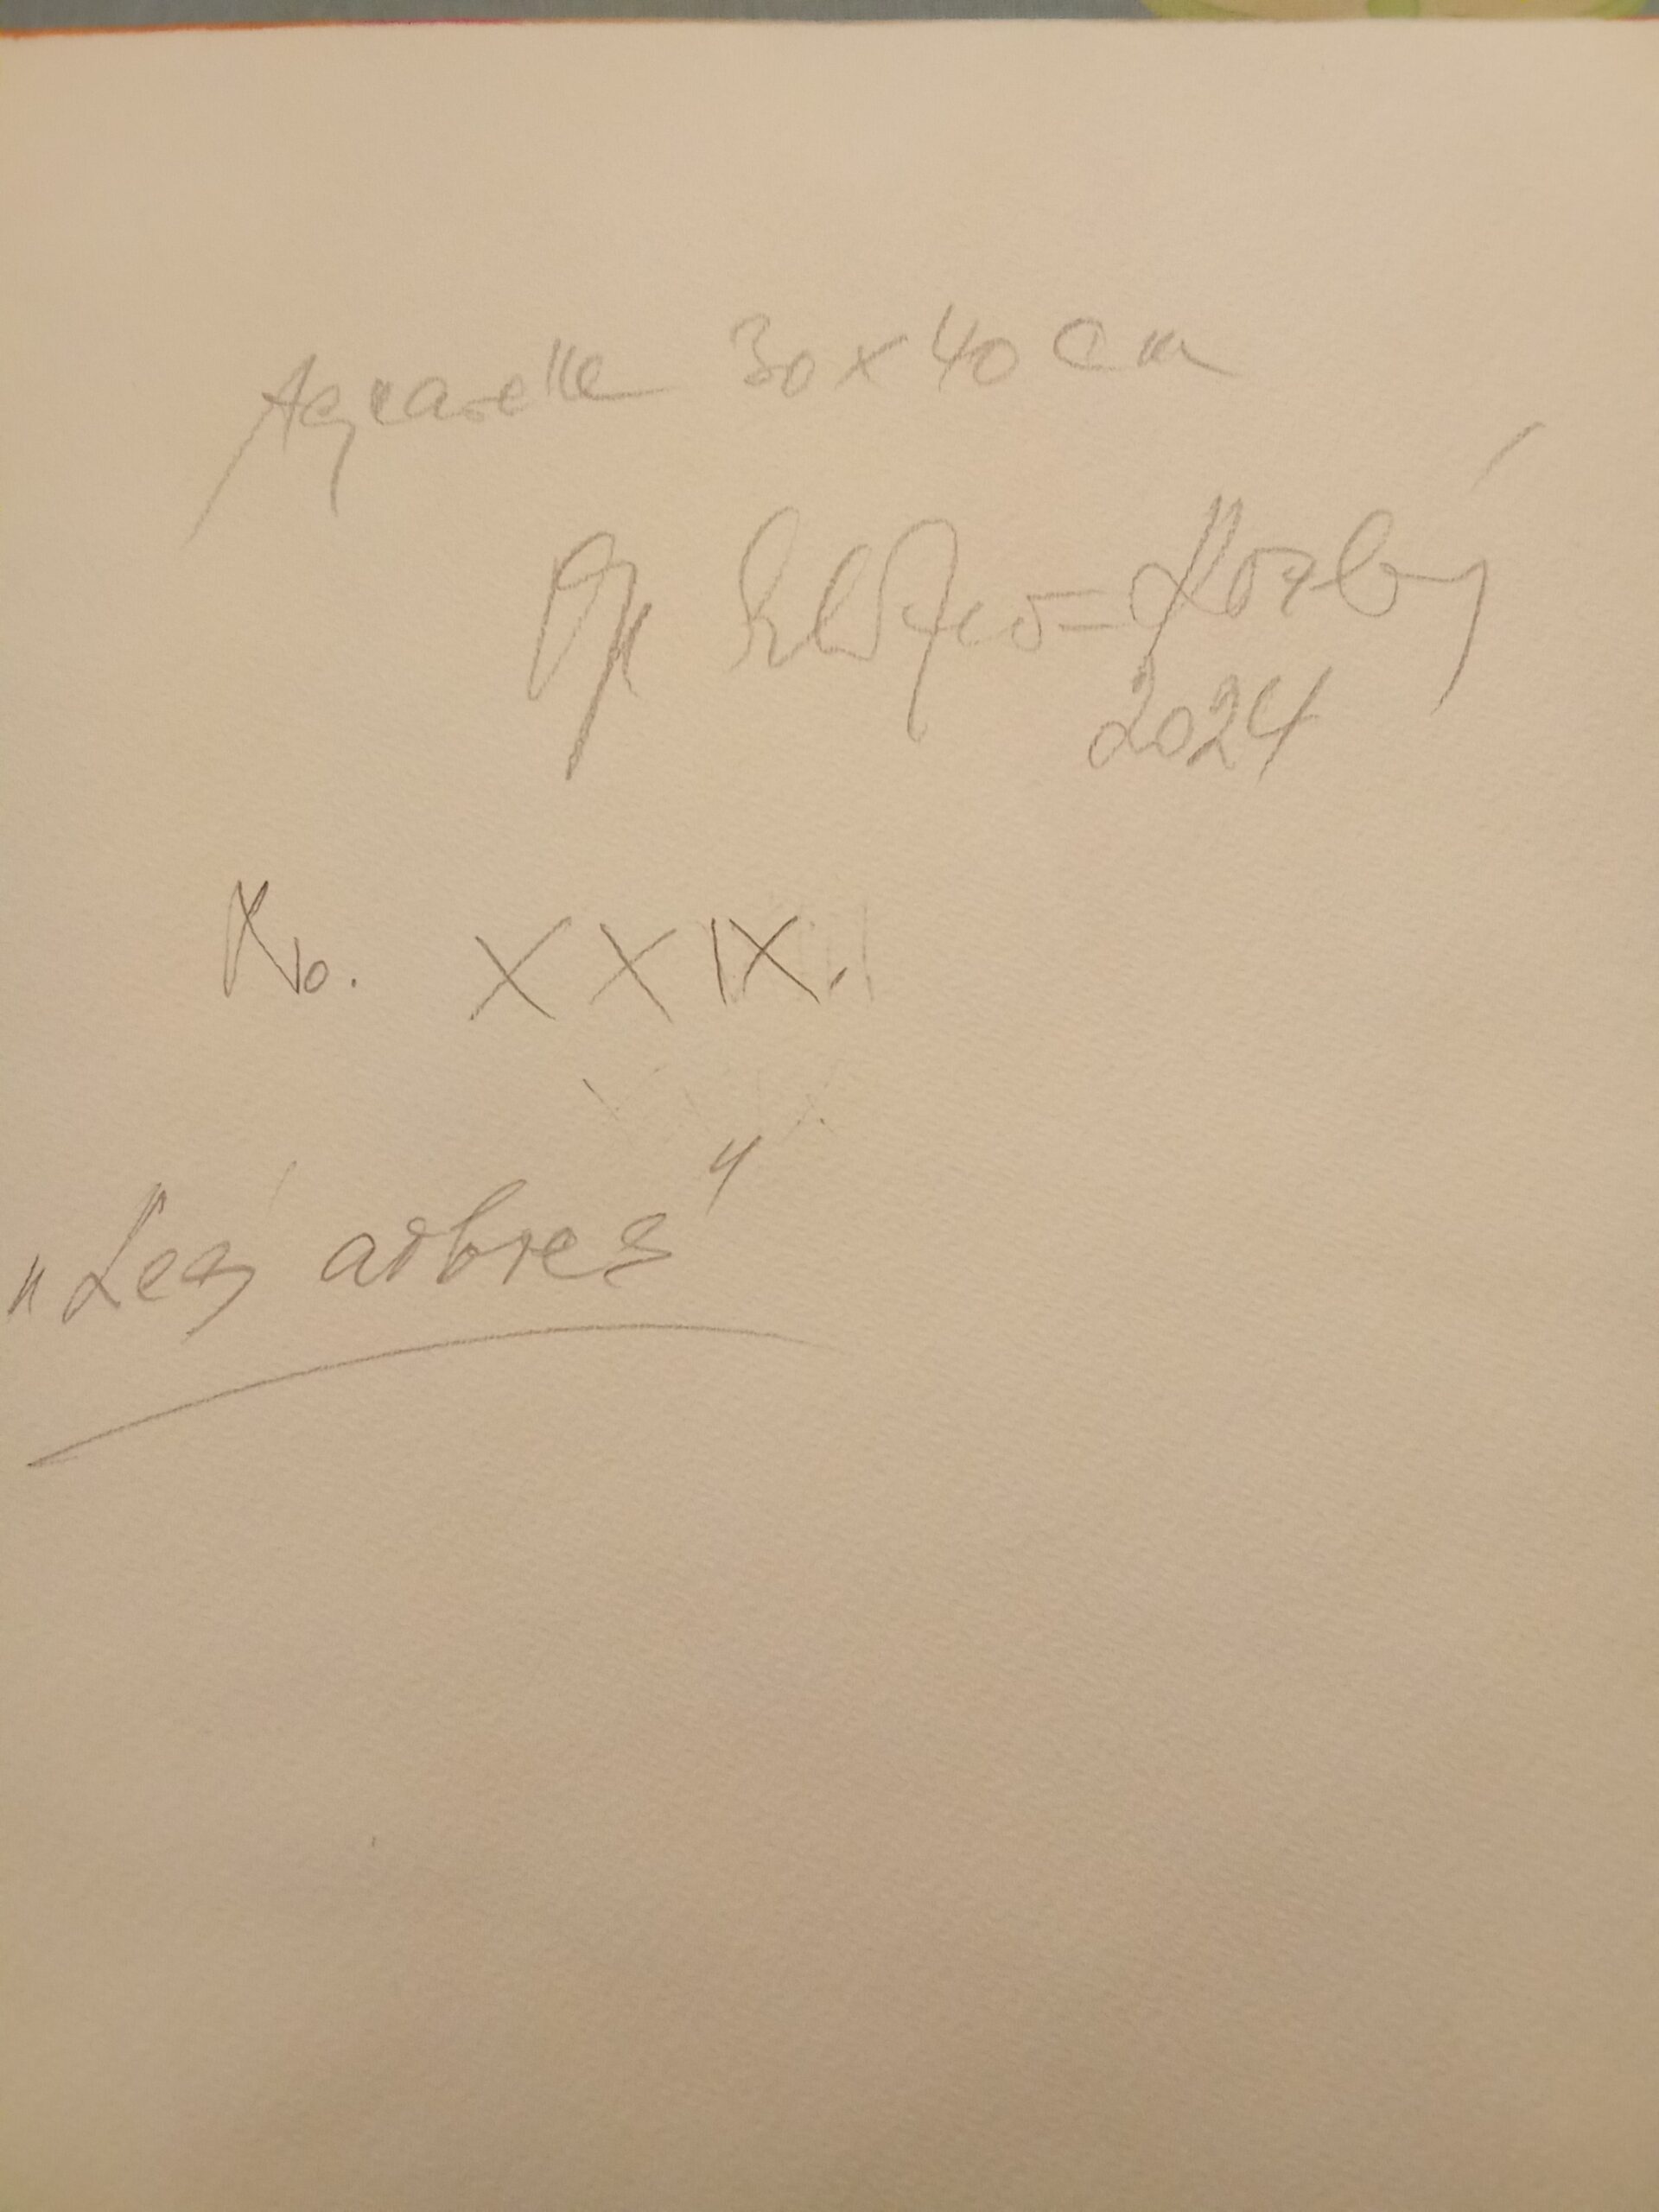 Aquarelle 30x40 cm
2024
No. XXIX.
„Les arbres"